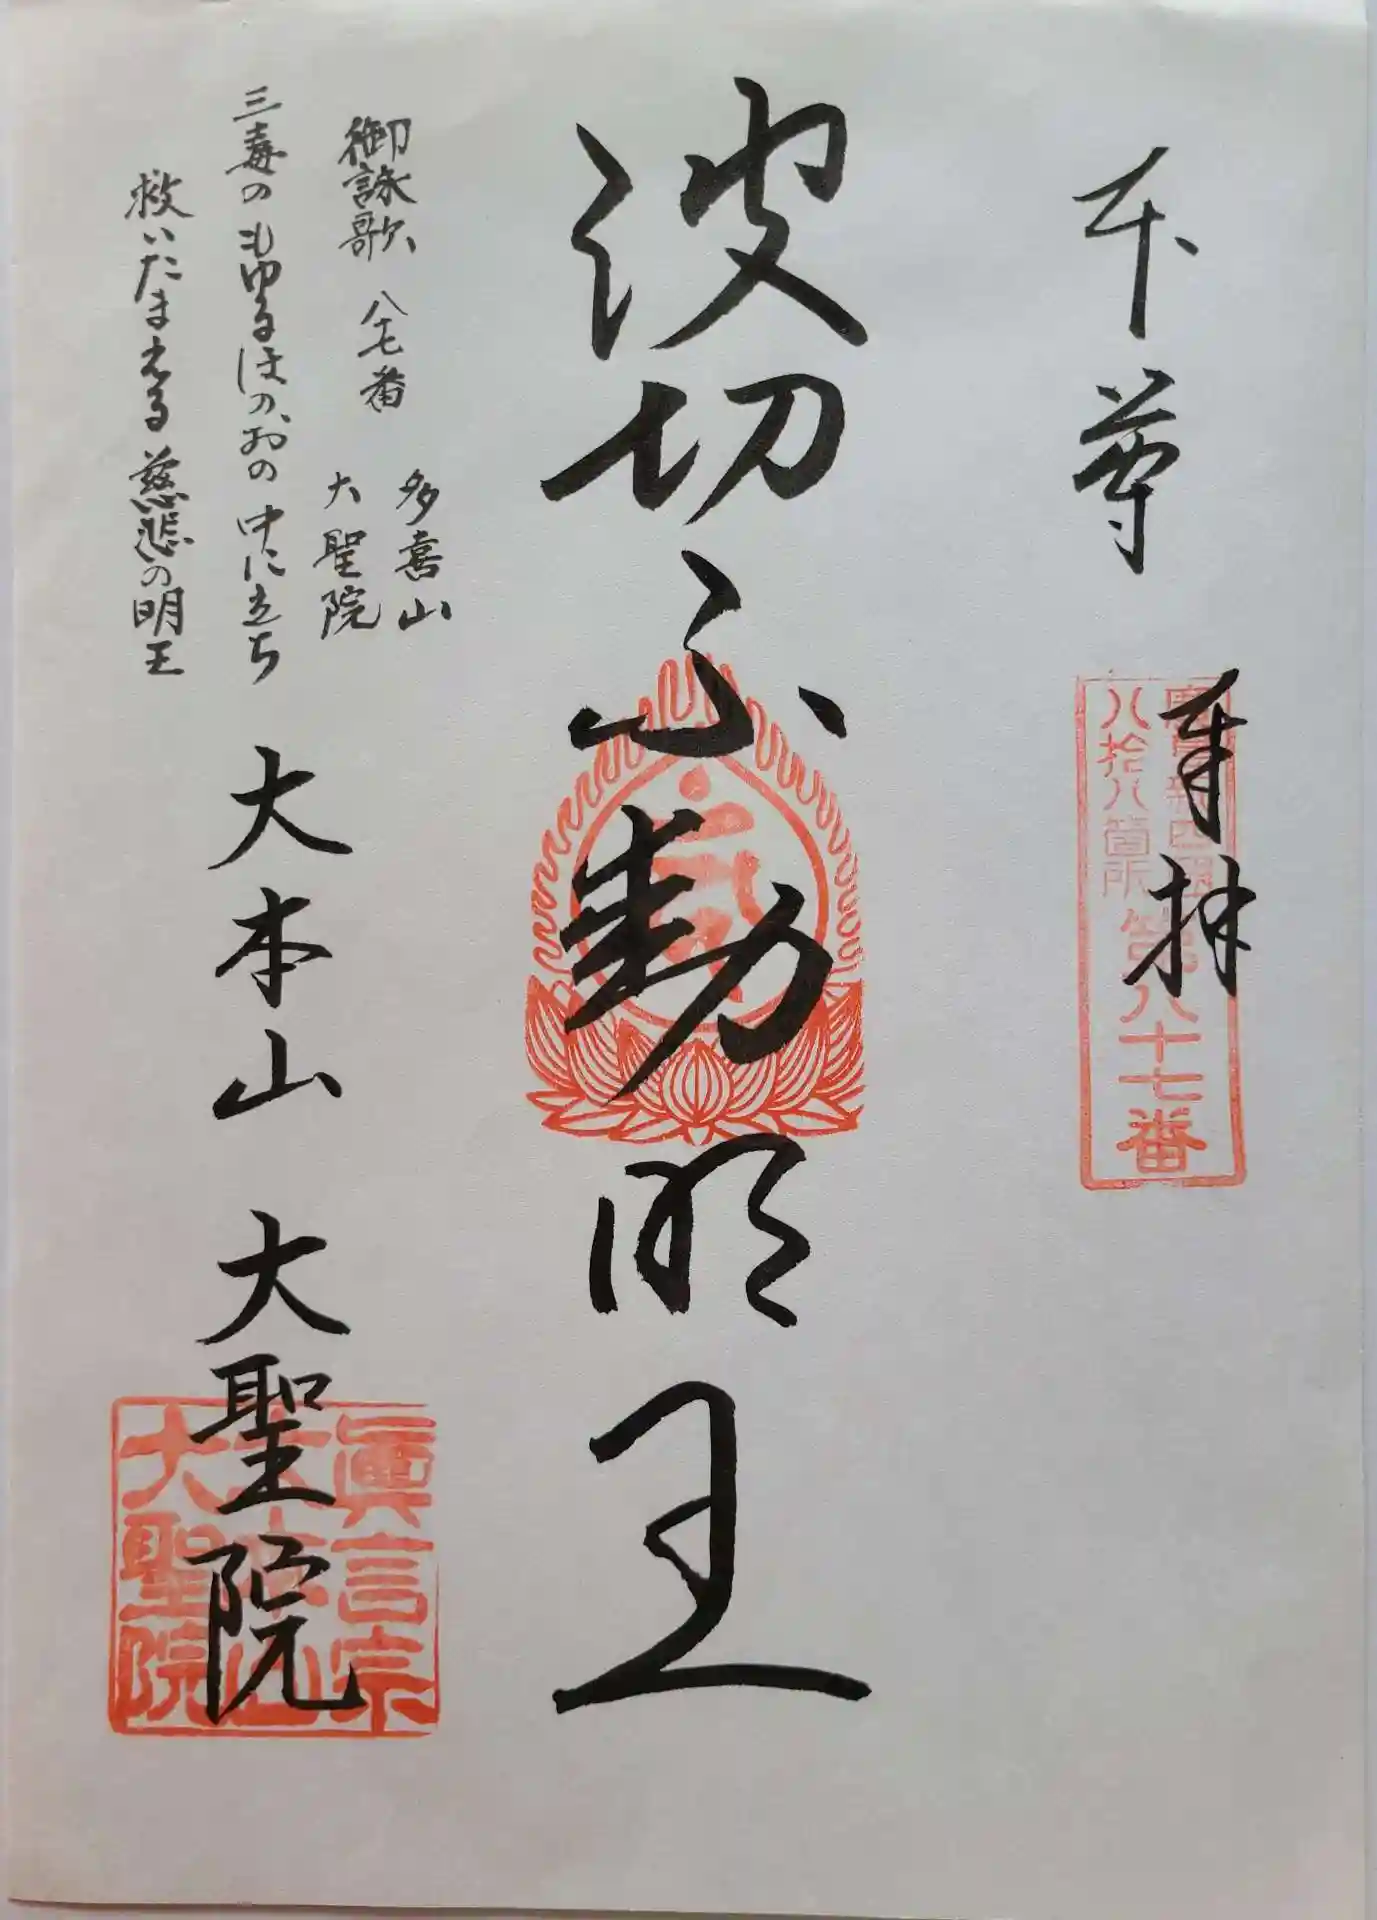 本尊
奉拝
廣島新四國
八拾八箇所
第八十七番
波切不動明王
御詠歌 八十七番
多喜山
大聖院
三毒の もゆるほのおの 中に立ち
救いたまえる 慈悲の明王
大本山 大聖院
眞言宗
大本山
大聖院